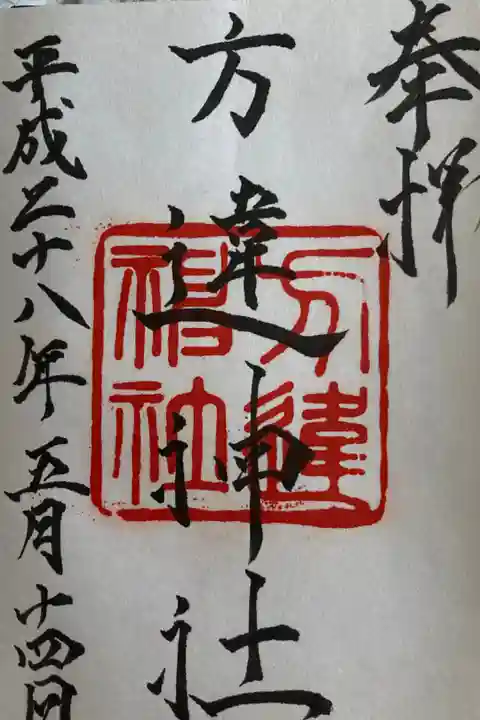 奉拝
方違神社
方違
神社
平成二十八年五月十四日